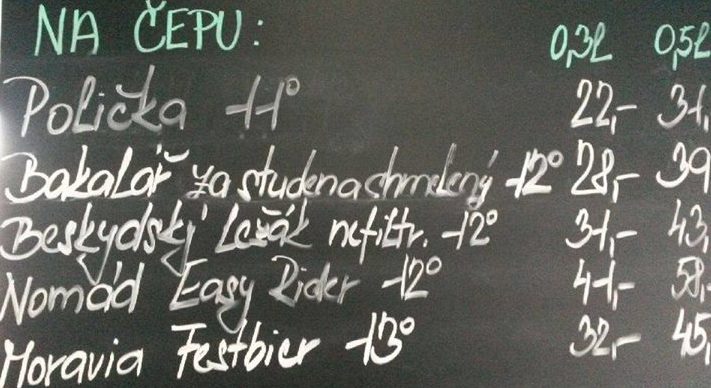 NA ČEPU: 0,3l 0,5l
Polička 11° 22,- 31,
Bakalář za studena chmelený 12° 28,- 39
Beskydský Ležák nefiltr. 12° 31,- 43,
Nomád Easy Rider 12° 41,- 58,-
Moravia Festbier 13° 32,- 45,